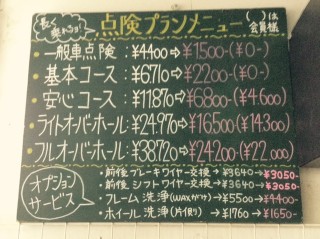 長く乗れる!! 点検プランメニュー ( )は会員様
・一般車点検:¥4400⇨¥1500-(¥0-)
・基本コース:¥6710⇨¥2200-(¥0-)
・安心コース:¥11870⇨¥6800-(¥4.600)
・ライトオーバーホール:¥24.970⇨¥16.500(¥14.300)
・フルオーバーホール:¥38.720⇨¥24200(¥22.000)
オプションサービス
・前後ブレーキワイヤー交換→¥3640→¥3050-
・前後シフトワイヤー交換→¥3640→¥3050-
・フレーム洗浄(WAXがけ)→¥5500→¥4400-
・ホイール洗浄(片側)→¥1760→¥1650-